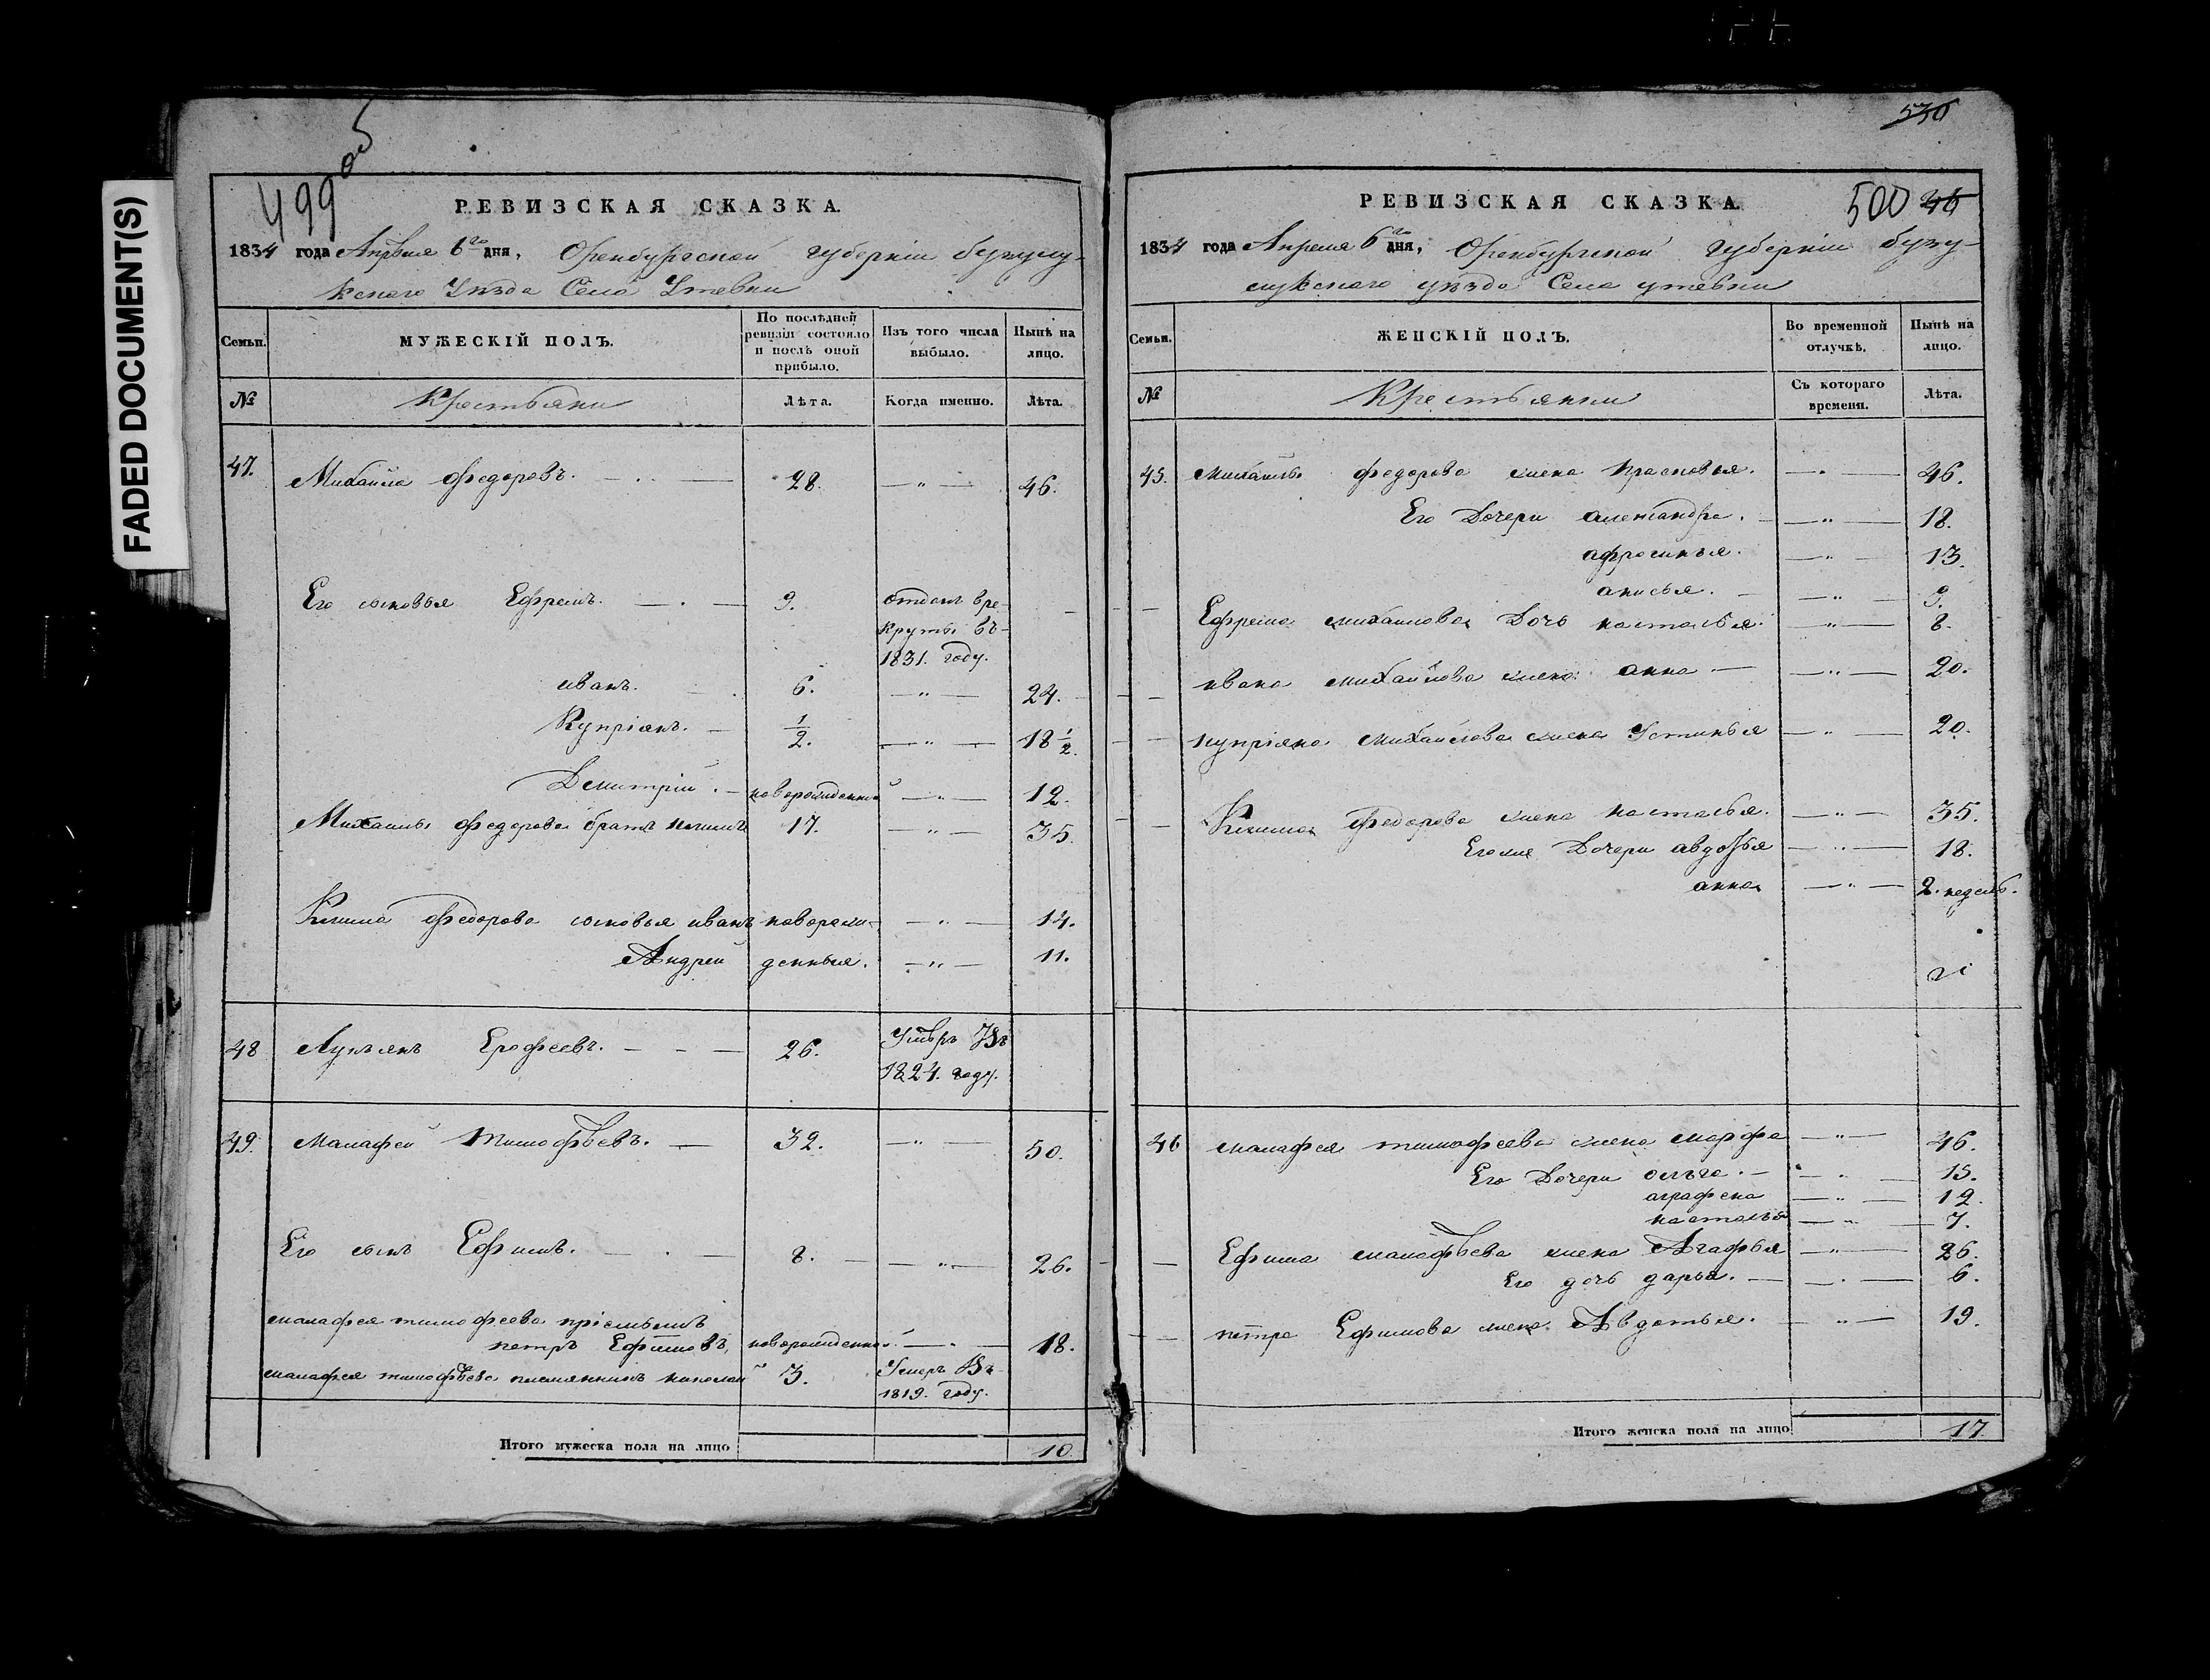 FADED DOCUMENT(S)
499 об
РЕВИЗСКАЯ СКАЗКА.
1834 года Апреля 6го дня, Оренбургской губернiи бузулу-
кского Уезда Села Утевки
Семьи.
МУЖЕСКIЙ ПОЛЪ.
По послѣдней ревизiи состояло и послѣ оной прибыло.
Изъ того числа выбыло.
Нынѣ на лицо.
№
Крестьяни
Лѣта.
Когда именно.
Лѣта.
47. Михайла федоровъ. 28. — „ — 46.
Его сыновья Ефремъ. 9. отданъ вре-
круты въ
1831. году.
иванъ. 6. — „ — 24.
Купрiянъ. 1/2. — „ — 18 1/2.
Дмитрiй. новорожденной — „ — 12.
Михайлы федорова братъ климъ 17. — „ — 35.
Клима федорова сыновья иванъ новорож- — „ — 14.
Андрей денныя. — „ — 11.
48 Лукъянъ Ерофеевъ. 26. Умѣръ Въ
1824. году.
49. Малафей тимофѣевъ. 32. — „ — 50.
Его сынъ Ефимъ. 8. — „ — 26.
малафея тимофеева прiемышъ
петръ Ефимовъ, новорожденной — „ — 18.
малафея тимофѣева племянникъ николай 3. Умеръ Въ
1819. году.
Итого мужеска пола на лицо 10.
530
РЕВИЗСКАЯ СКАЗКА.
500 46
1834 года Апреля 6го дня, Оренбургской губернiи бузу-
лукского уезда Села утевки
Семьи.
ЖЕНСКIЙ ПОЛЪ.
Во временной отлучкѣ.
Нынѣ на лицо.
№
Крестьянки
Съ котораго времени.
Лѣта.
45. михайлы федорова жена Прасковья. — „ — 46.
Его Дочери александра. — „ — 18.
афросинья. — „ — 13.
анисья. — „ — 9.
Ефрема михайлова Дочь настасья. — „ — 8.
ивана михайлова жена анна — „ — 20.
купрiяна михайлова жена Устинья — „ — 20.
Клима Федорова жена настасья. — „ — 35.
Егоже Дочери авдотья — „ — 18.
анна — „ — 2. недель.
46 малафея тимофеева жена марфа — „ — 46.
Его Дочери ольга. — „ — 15.
аграфена — „ — 12.
настасья — „ — 7.
Ефима малафѣева жена Агафья — „ — 26.
Его дочь дарья. — „ — 6.
петра Ефимова жена Авдотья. — „ — 19.
Итого женска пола на лицо 17.